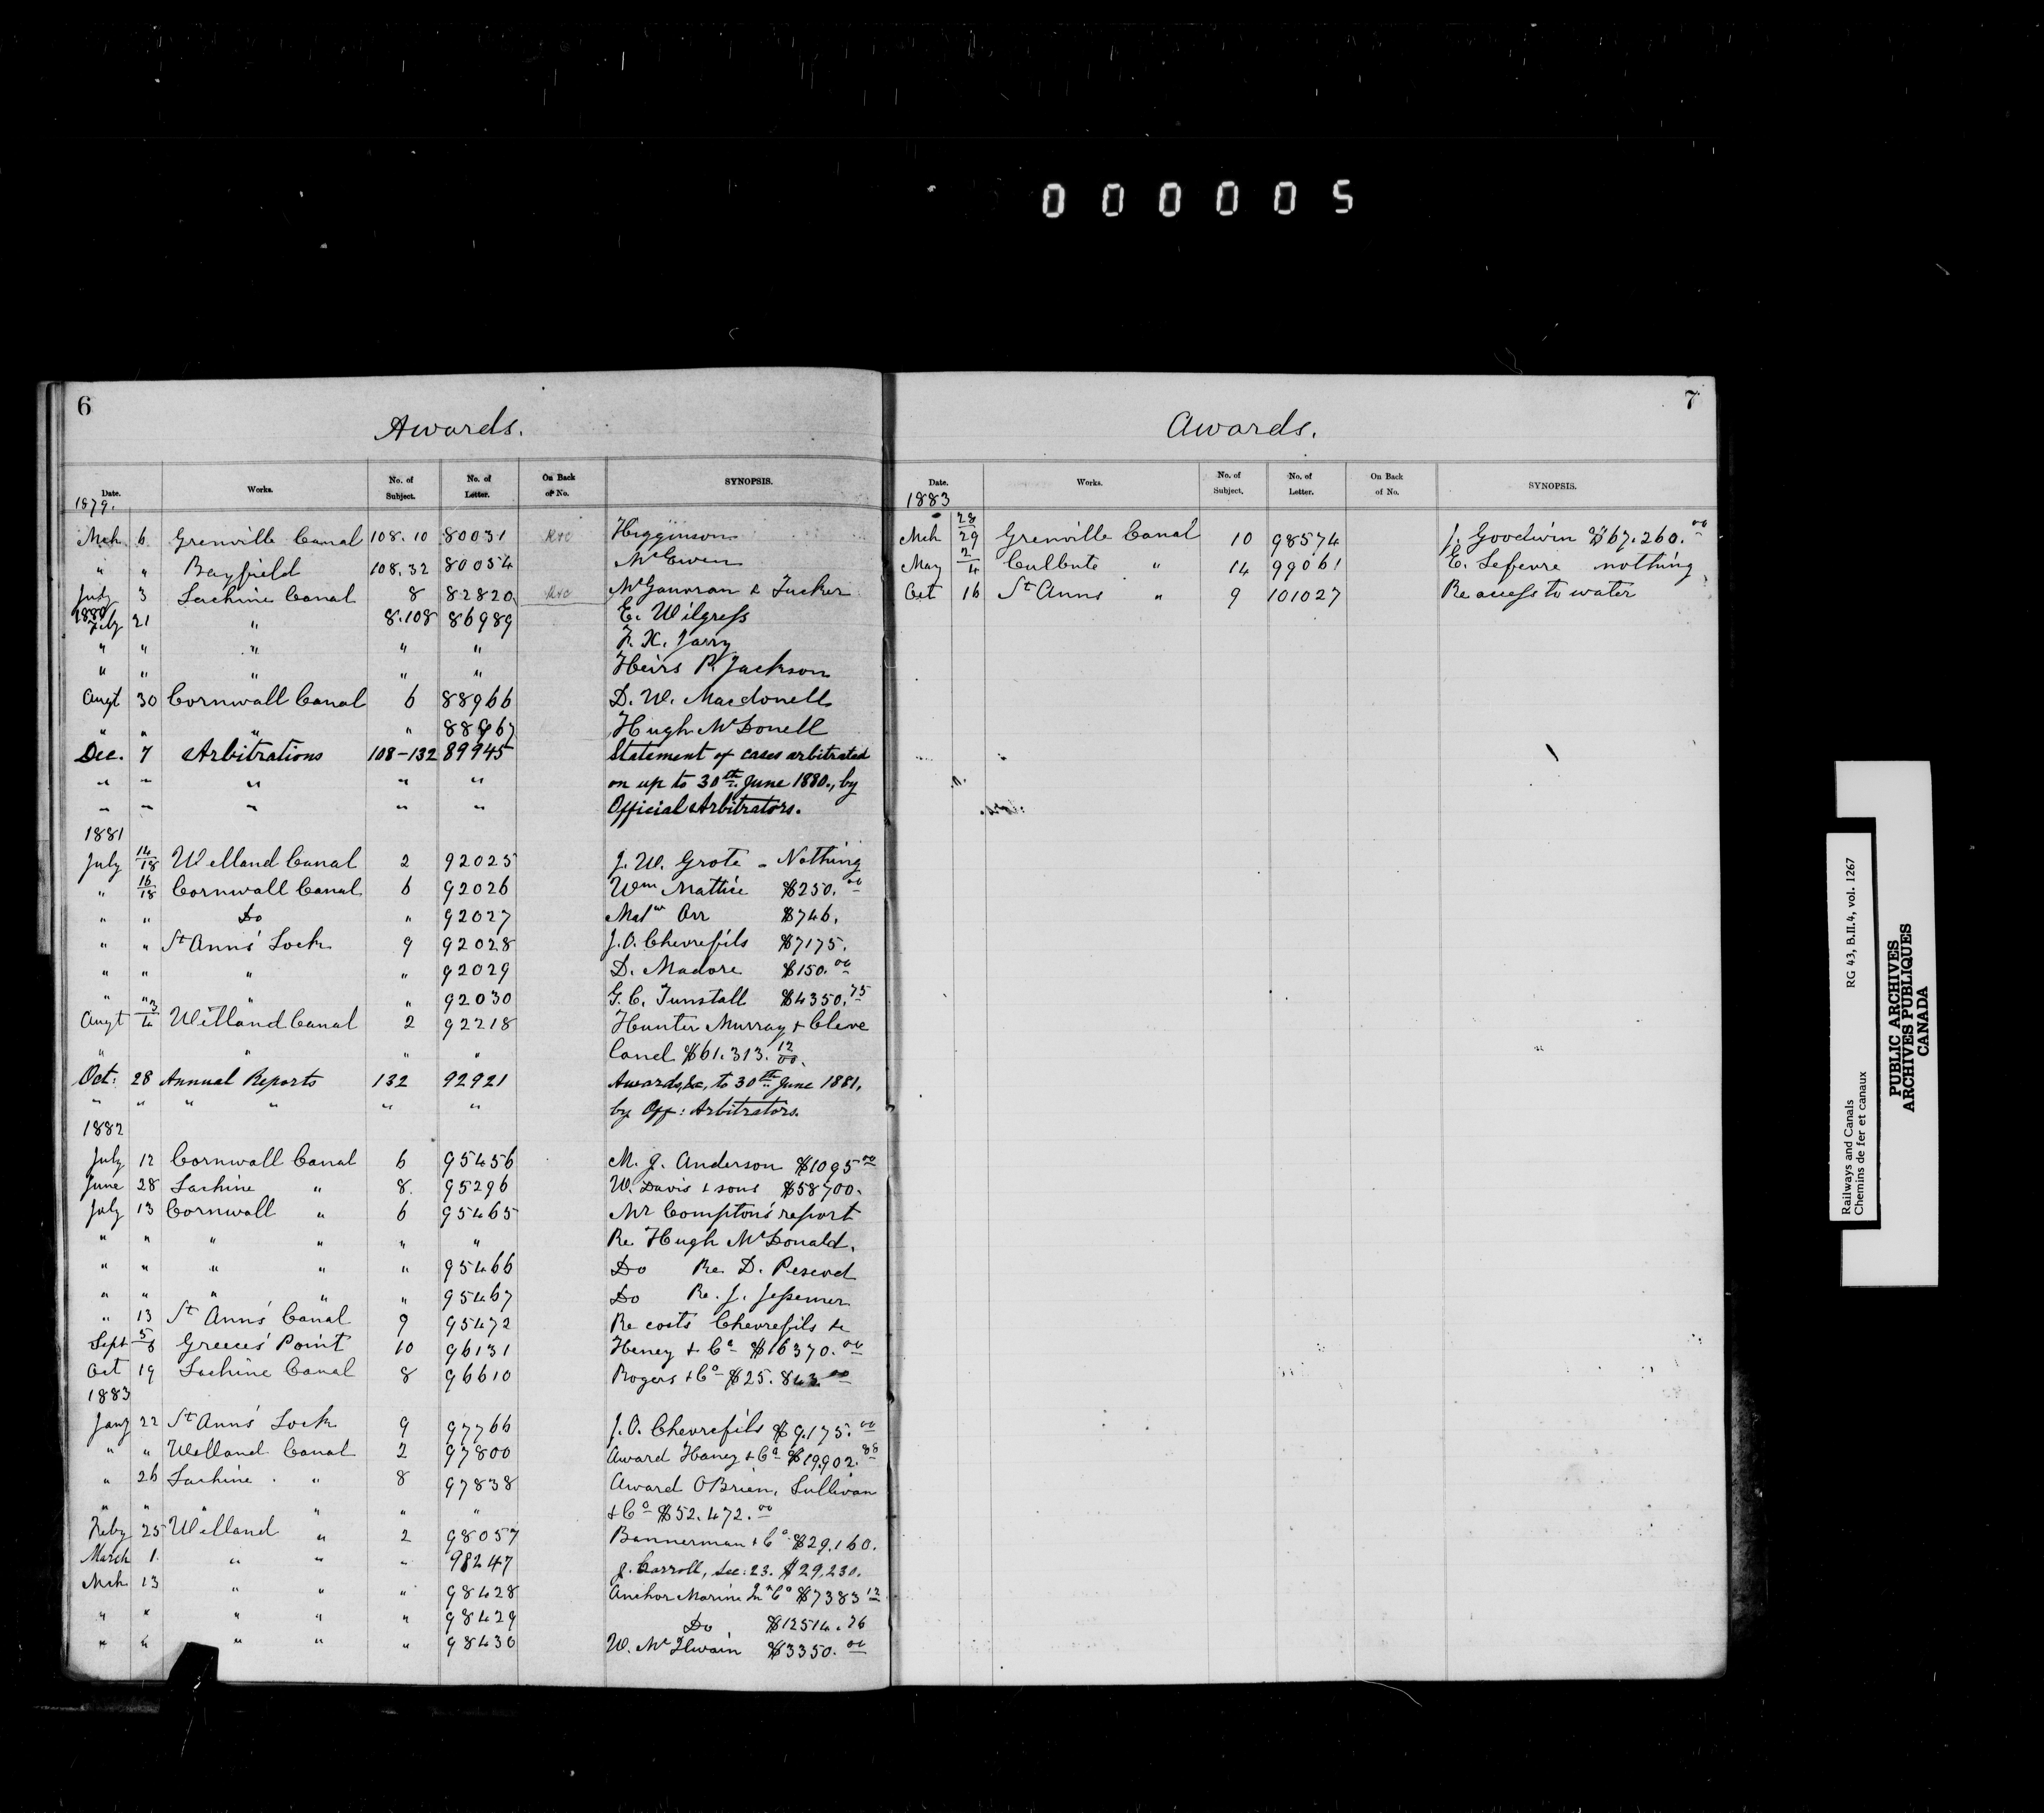 000005
6
Awards.
Date. Works. No. of Subject. No. of Letter. On Back of No. SYNOPSIS.
1879.
Mch 6 Grenville Canal 108.10 80031 R+C Higginson
" " Bayfield 108.32 80054 McEwen
July 3 Lachine Canal 8 82820 R+C & Tucker
1880
Feby 21 " 8.108 86989 E. Wilgress
" " " " " F. X. Jarry
" " " " " Heirs P. Jackson
Augt 30 Cornwall Canal 6 88966 D. W. Macdonell
" " " " 88967 Hugh McDonell
Dec. 7 Arbitrations 108-132 89945 Statement of cases arbitrated
" " " " " on up to 30th June 1880., by
" " " " " Official Arbitrators.
1881
July 14/18 Welland Canal 2 92025 J. W. Grote - Nothing
" 16/18 Cornwall Canal 6 92026 Wm Mattice $250.00
" " Do " 92027 Matw Orr $746.
" " St Anns' Lock 9 92028 J. O. Chevrefils $7175.
" " " " 92029 D. Madore $150.00
" " " " 92030 G. C. Tunstall $4350.75
Augt 3/4 Welland Canal 2 92218 Hunter Murray + Cleve
" " " " land $61.313.12/00.
Oct: 28 Annual Reports 132 92921 Awards, &c, to 30th June 1881,
" " " " " " by Off: Arbitrators.
1882
July 12 Cornwall Canal 6 95456 M. J. Anderson $1095.00
June 28 Lachine " 8. 95296 W. Davis + sons $58700.
July 13 Cornwall " 6 95465 Mr Compton's report
" " " " " " Re Hugh McDonald.
" " " " " 95466 Do Re. D. Pescod
" " " " " 95467 Do Re. J. Jessemer
" 13 St Anns' Canal 9 95472 Re costs Chevrefils &c
Sept 5/6 Greece's Point 10 96131 Heney + Co $16370.00
Oct 19 Lachine Canal 8 96610 Rogers + Co $25.843.00
1883
Jany 22 St Anns' Lock 9 97766 J. O. Chevrefils $9.175.00
" " Welland Canal 2 97800 Award Haney + Co $19.902.88
" 26 Lachine " 8 97838 Award OBrien, Sullivan
" " " " " " + Co $52.472.00
Feby 25 Welland " 2 98057 Bannerman + Co $29.160.
March 1. " " " 98247 J. Carroll, Sec: 23. $29,230.
Mch 13 " " " 98428 Anchor Marine In Co $7383.12
" " " " " 98429 Do $12514.26
" " " " " 98430 W. McIlwain $3350.00
7
Awards.
Date. Works. No. of Subject. No. of Letter. On Back of No. SYNOPSIS.
1883
Mch 28/29 Grenville Canal 10 98574 J. Goodwin $67.260.00
May 2/4 Culbute " 14 99061 E. Lefevre nothing
Oct 16 St Anns " 9 101027 Re access to water
Railways and Canals RG 43, B.II.4, vol. 1267
Chemins de fer et canaux
PUBLIC ARCHIVES
ARCHIVES PUBLIQUES
CANADA